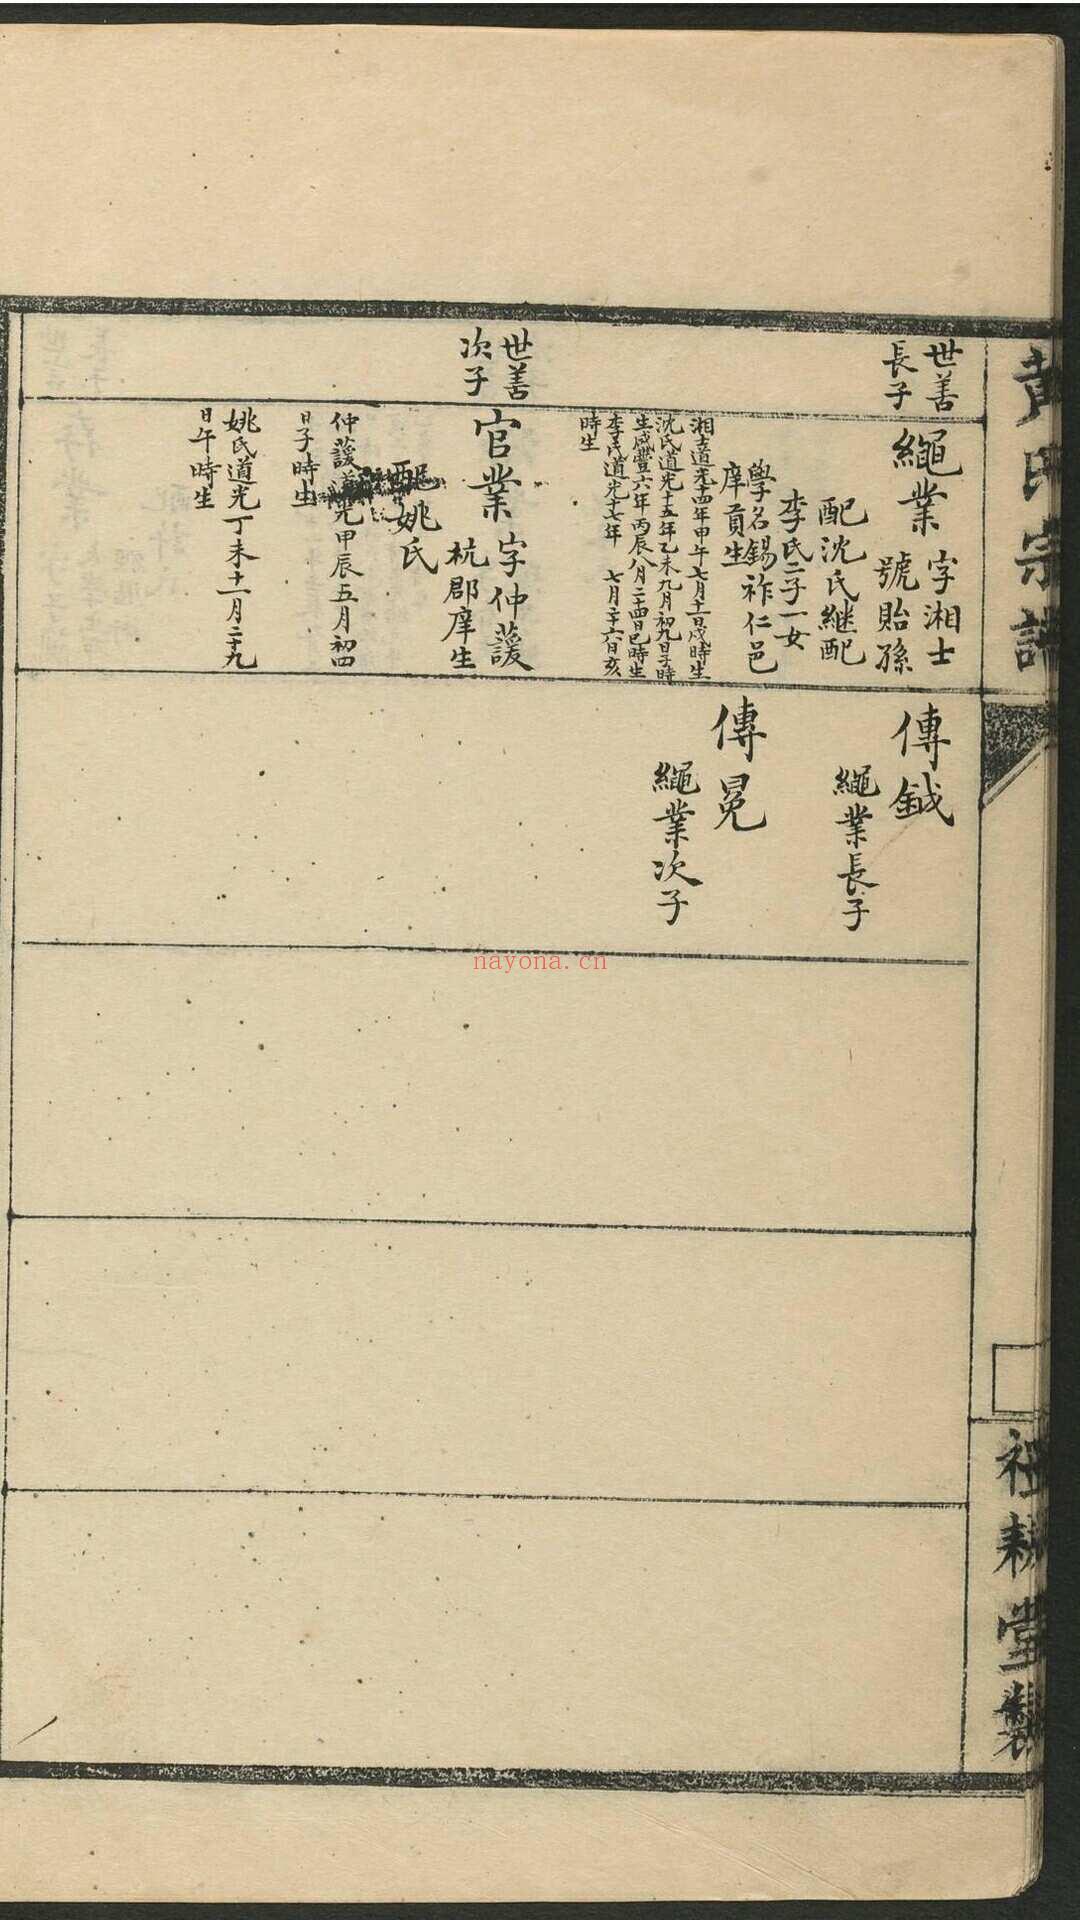 黃氏宗譜
世善
長子
繩業
字湘士
號貽孫
配沈氏継配
李氏二子一女
學名錫祚仁邑
庠貢生
湘士道光十四年甲午七月十一日戌時生
沈氏道光十五年乙未九月初九日子時
生咸豐六年丙辰八月二十四日巳時生
李氏道光十七年 七月二十六日亥
時生
世善
次子
官業
字仲蘐
杭郡庠生
配姚氏
仲蘐道光甲辰五月初四
日子時生
姚氏道光丁未十一月二十九
日午時生
傳鉞
繩業長子
傳冕
繩業次子
nayona.cn
祖耕堂製